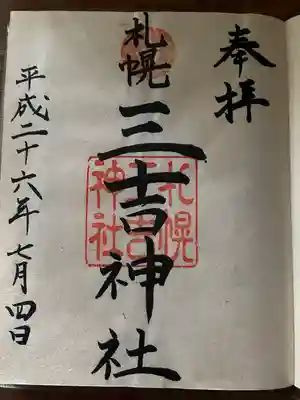 奉拝
札幌
三吉神社
札幌三吉神社
平成二十六年七月四日